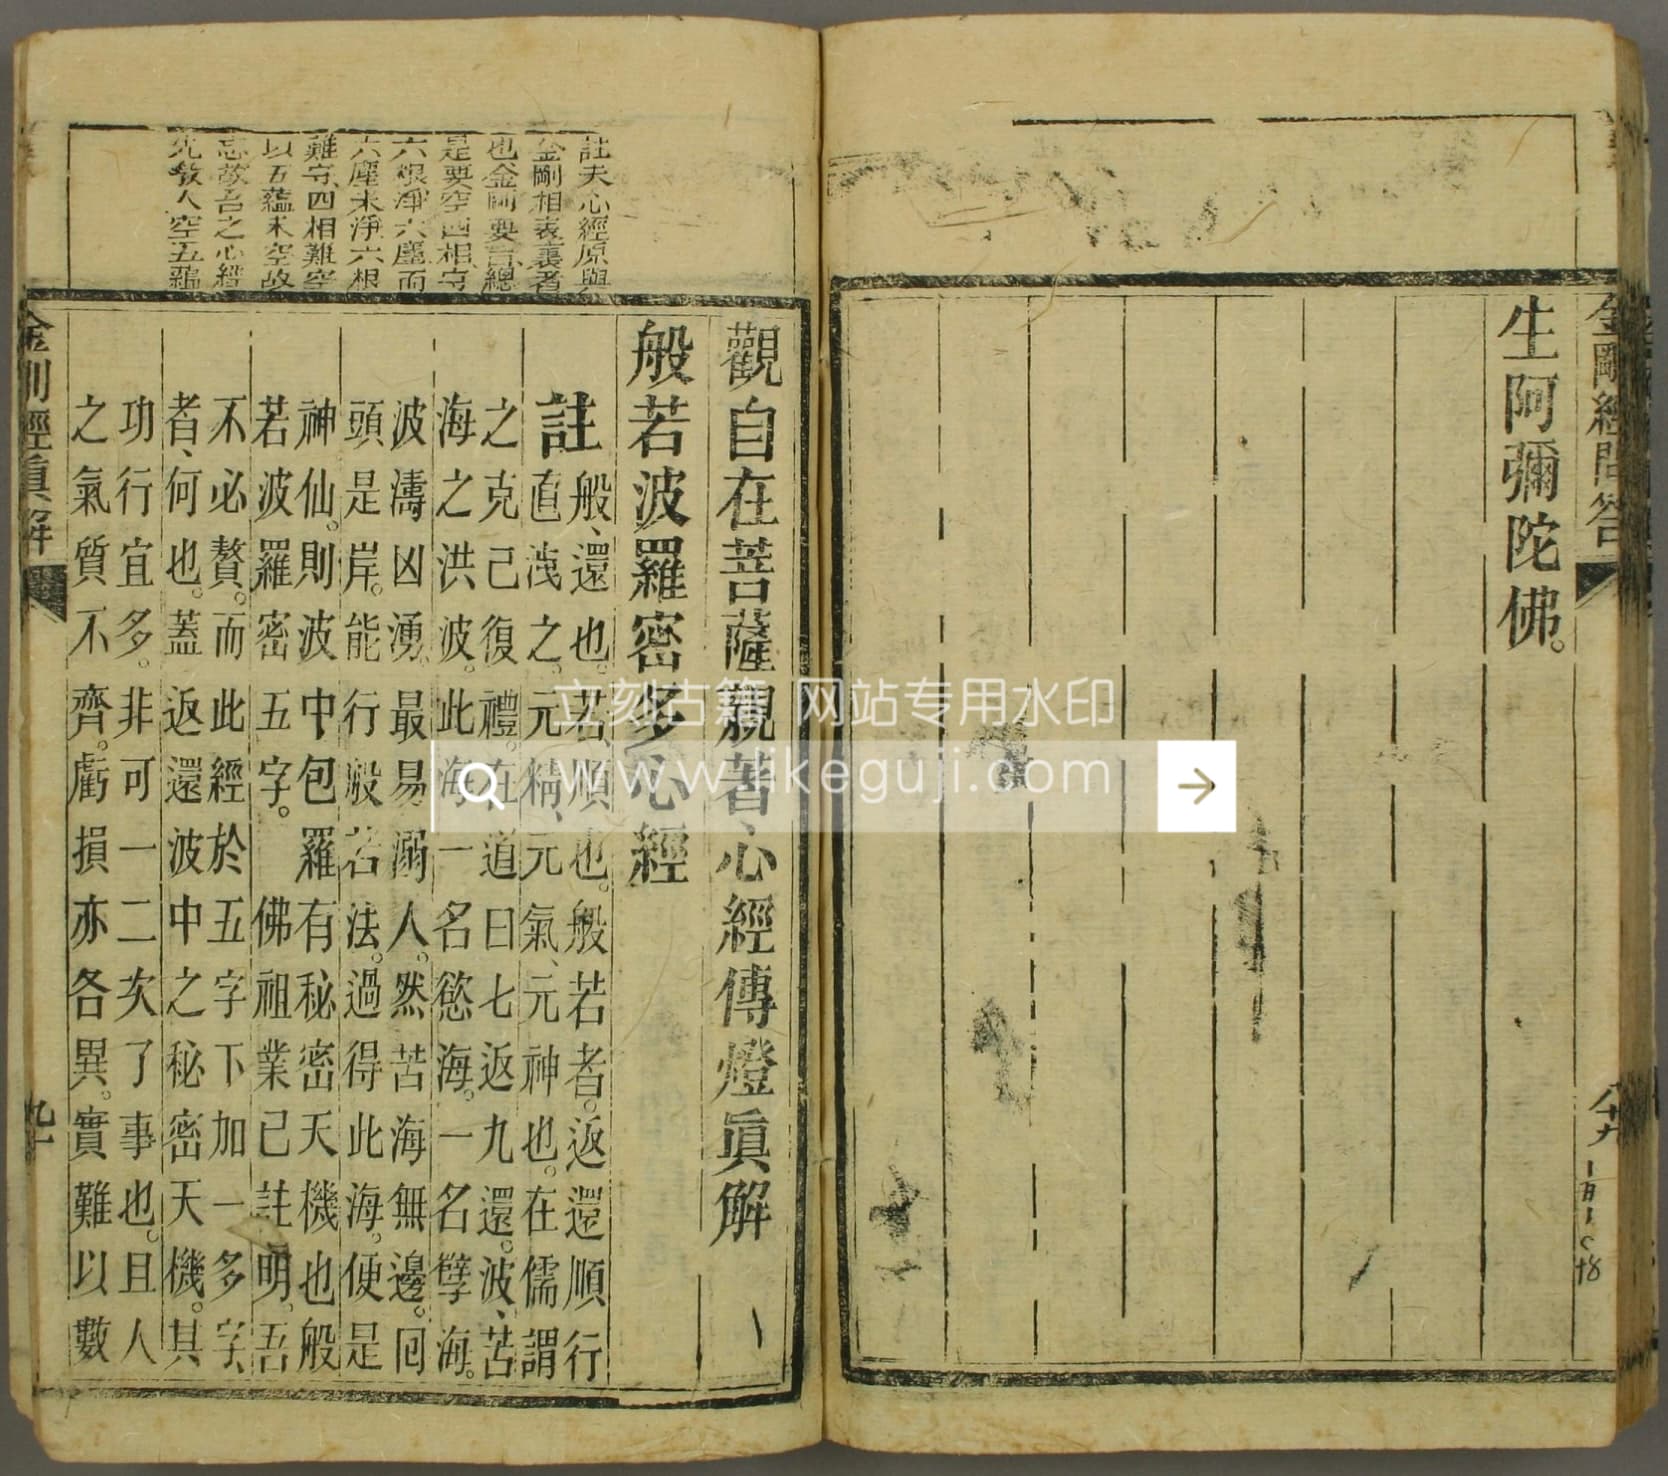 金剛經問答
生阿彌陀佛。
八十九
註夫心經原與
金剛相表裏者
也金剛要言總
是要空四相、守
六根淨六塵而
六塵未淨六根
難守四相難空
以五蘊未空故
忘故吾之心經
先教人空五蘊
觀自在菩薩親著心經傳燈眞解
般若波羅密多心經
註
般、還也。若、順也。般若者。返還順行
直洩之。元精、元氣、元神也。在儒謂
之克己復禮。在道曰七返九還。波、苦
海之洪波。此海一名慾海。一名孽海。
波濤凶湧。最易溺人。然苦海無邊。囘
頭是岸。能行般若法。過得此海。便是
神仙。則波中包羅有秘密天機也般
若波羅密五字。佛祖業已註明。吾
不必贅。而此經於五字下加一多字、
者、何也。蓋返還波中之秘密天機。其
功行宜多。非可一二次了事也。且人
之氣質不齊。虧損亦各異。實難以數
金剛經眞解
九十
立刻古籍 网站专用水印
www.likeguji.com